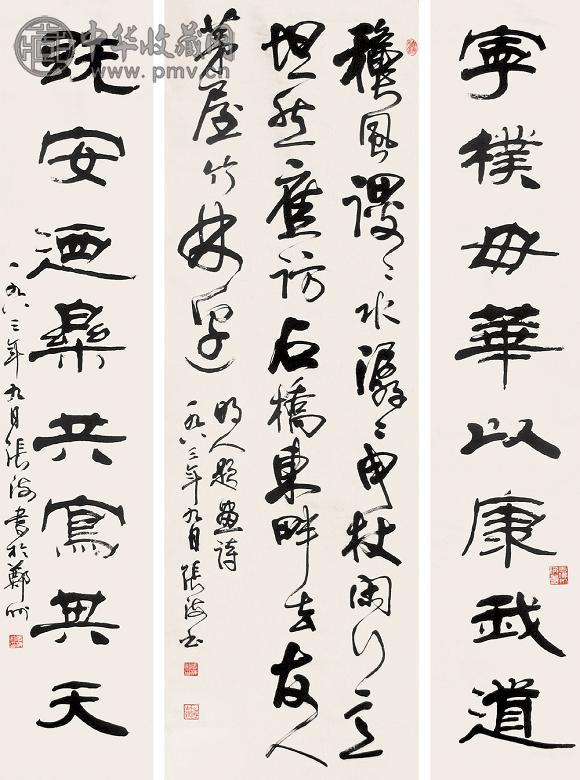 中华收藏网
www.pmv.cn
寧樸毋華以康我道
風謖謖水潺潺曳杖閑行意
坦然應訪石橋東畔去友人
茅屋竹林邊
明人題畫詩
一九八三年九月張海書
既安迺樂共寫其天
一九八三年九月張海書於鄭州